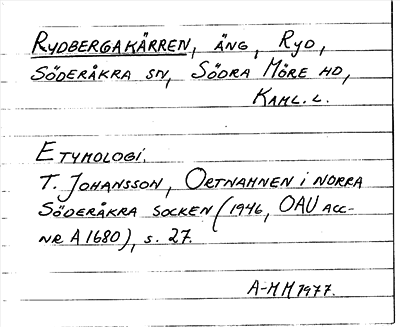 RYDBERGAKÄRREN, ÄNG, RYD,
SÖDERÅKRA SN, SÖDRA MÖRE HD,
KALM. L.
ETYMOLOGI.
T. JOHANSSON, ORTNAMNEN I NORRA
SÖDERÅKRA SOCKEN (1946, OAU ACC-
NR A 1680), s. 27.
A-MM 1977.